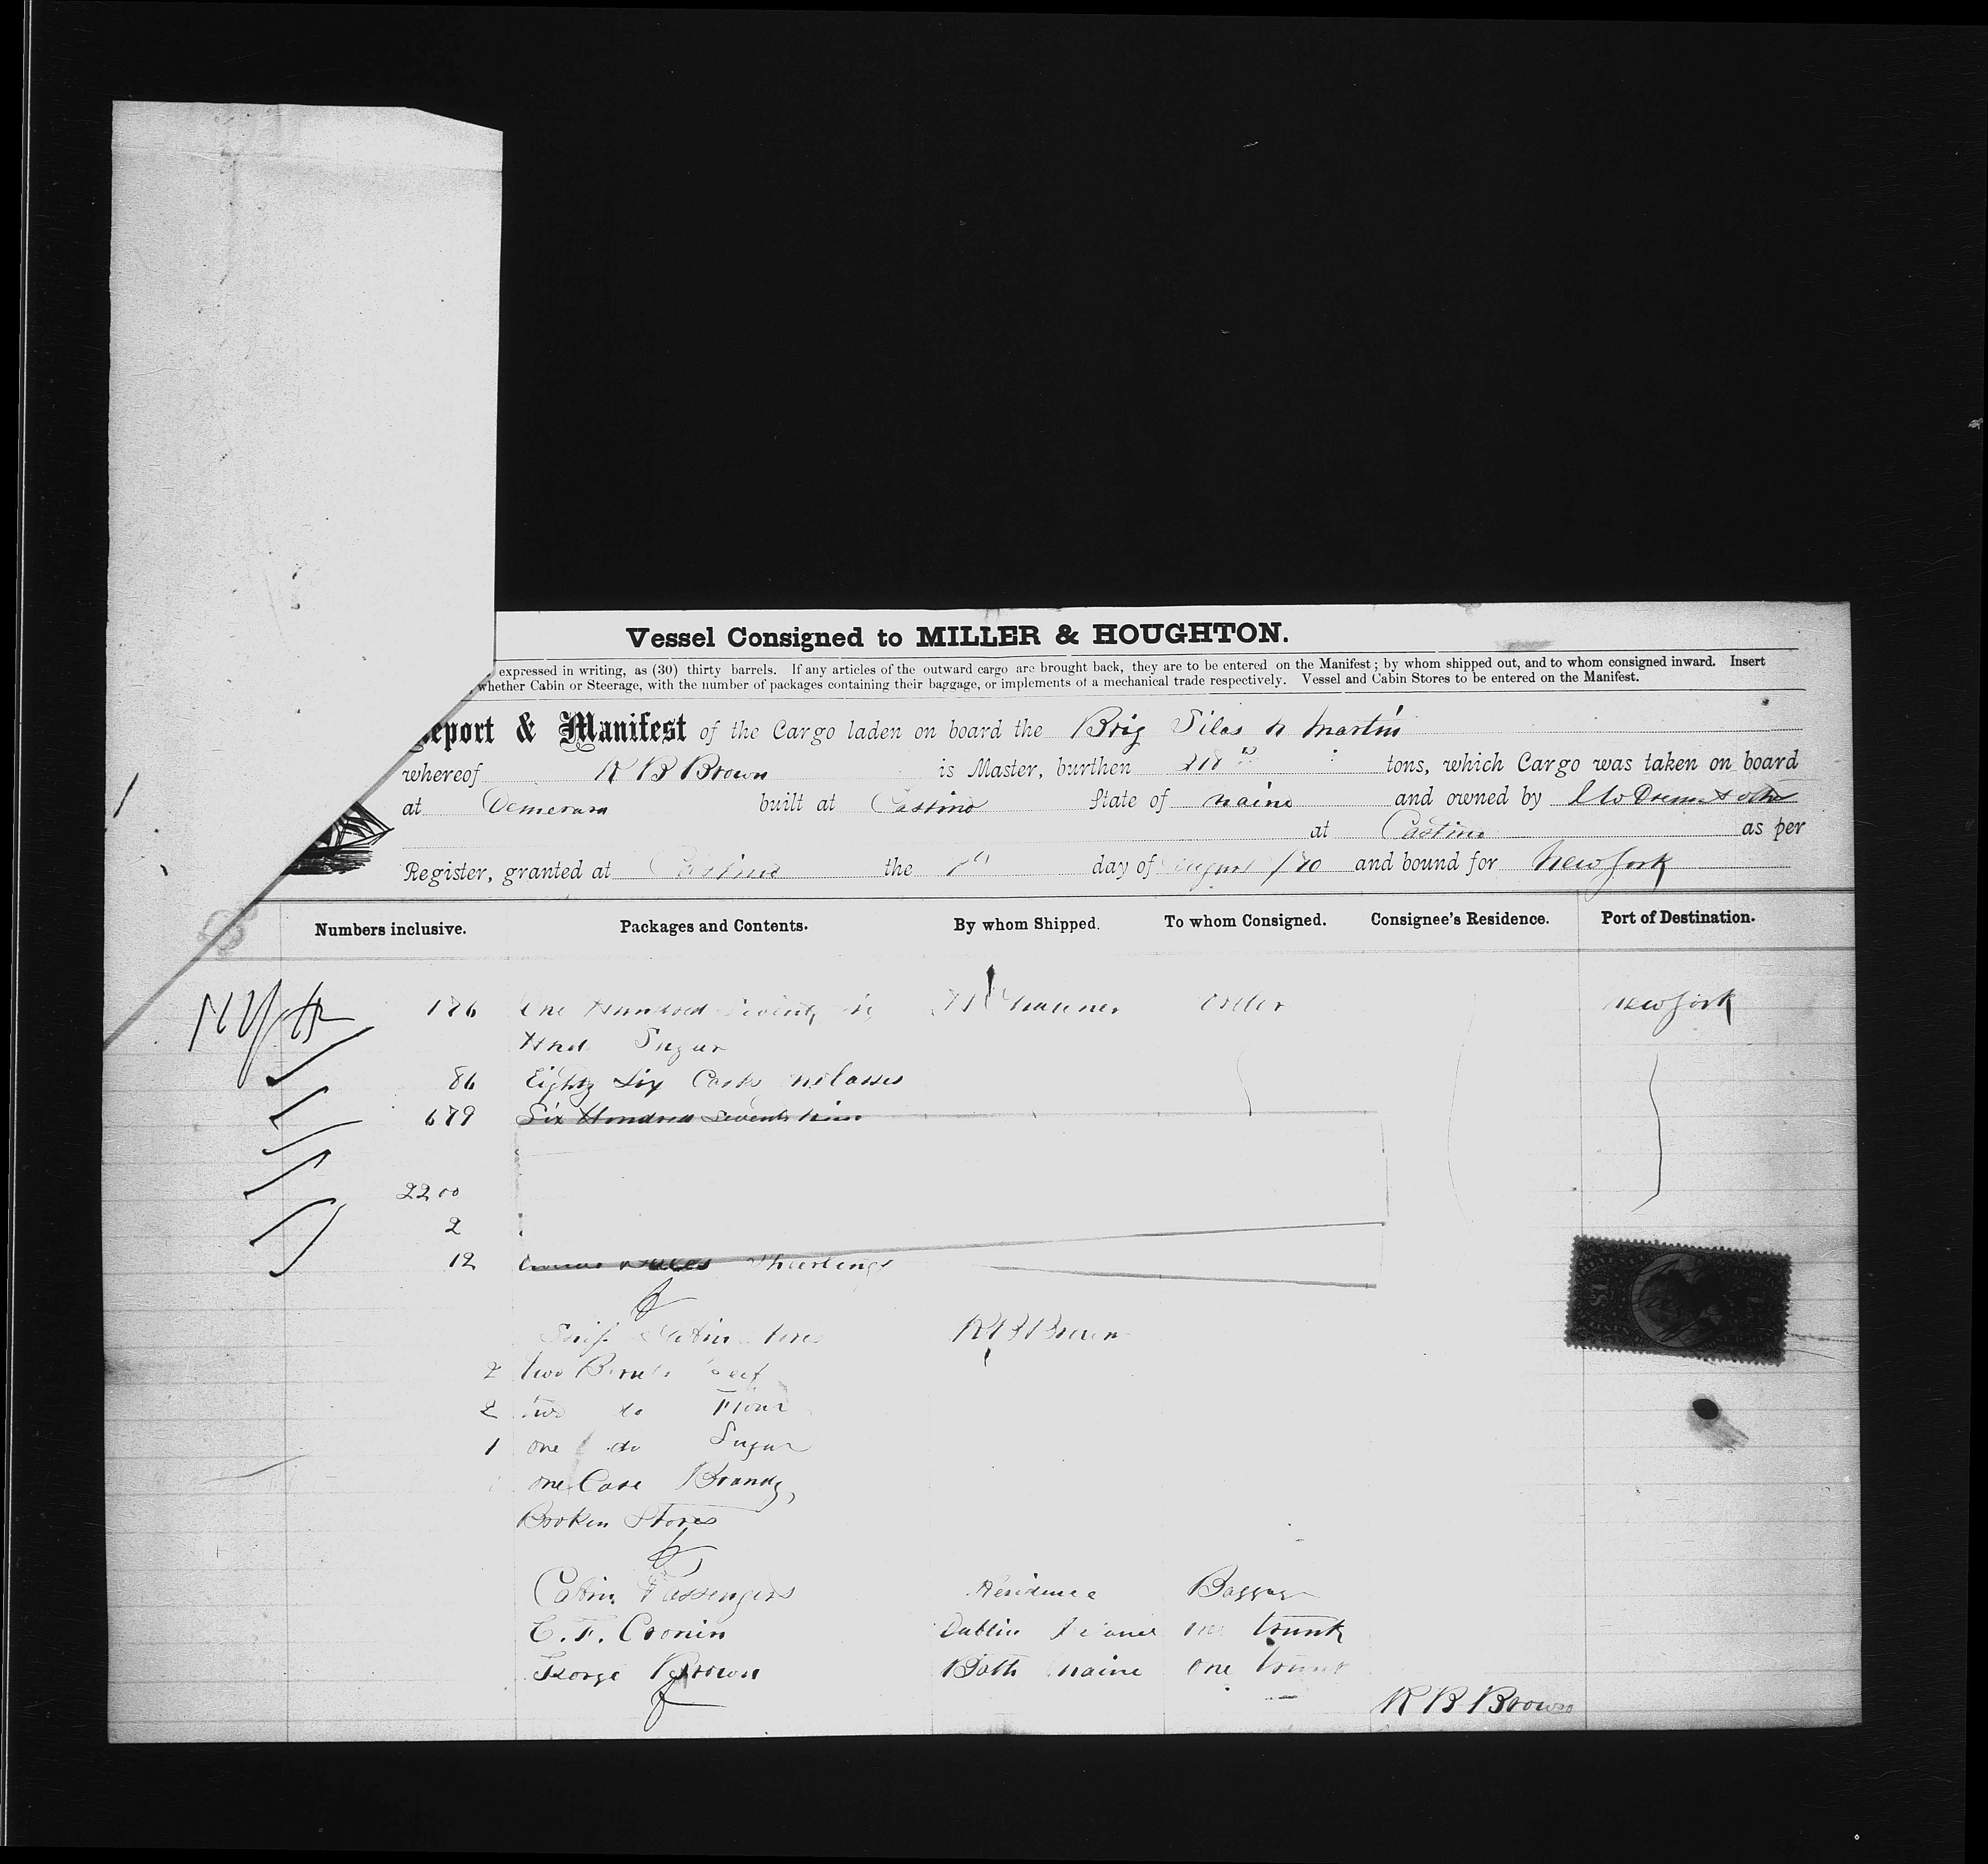 Vessel Consigned to MILLER & HOUGHTON.
expressed in writing, as (30) thirty barrels. If any articles of the outward cargo are brought back, they are to be entered on the Manifest; by whom shipped out, and to whom consigned inward. Insert
whether Cabin or Steerage, with the number of packages containing their baggage, or implements of a mechanical trade respectively. Vessel and Cabin Stores to be entered on the Manifest.
eport & Manifest of the Cargo laden on board the Brig Silas N Martin
whereof R B Brown is Master, burthen tons, which Cargo was taken on board
at Demerara built at Castine State of Maine and owned by
at Castine as per
Register, granted at Castine the day of August /70 and bound for New York
Numbers inclusive. Packages and Contents. By whom Shipped. To whom Consigned. Consignee's Residence. Port of Destination.
176 One Hundred Seventy Order New York
Hhd Sugar
86 Eighty Six Casks Molasses
679 Six Hundred Seventy Nine
2200
2
12 Bales
Stores R B Brown
2 Two Beef
2 Two do Flour
1 one do Sugar
one Case Brandy
Broken Stores
Cabin Passengers Residence Baggage
C. F. Cronin Dublin trunk
George Brown Bath Maine one trunk
R B Brown